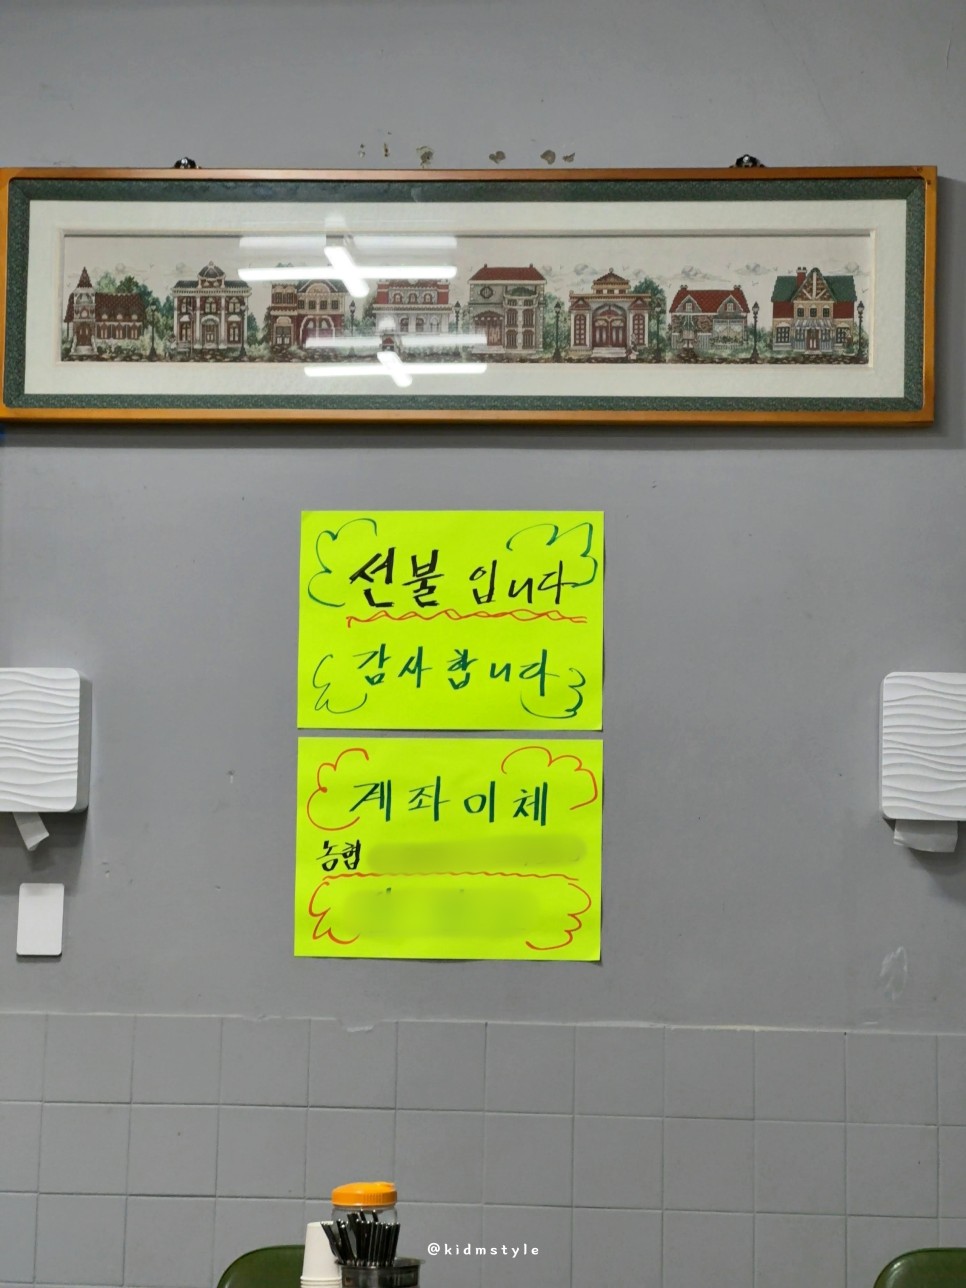 선불 입니다
감사합니다
계좌이체
농협
@kidmstyle